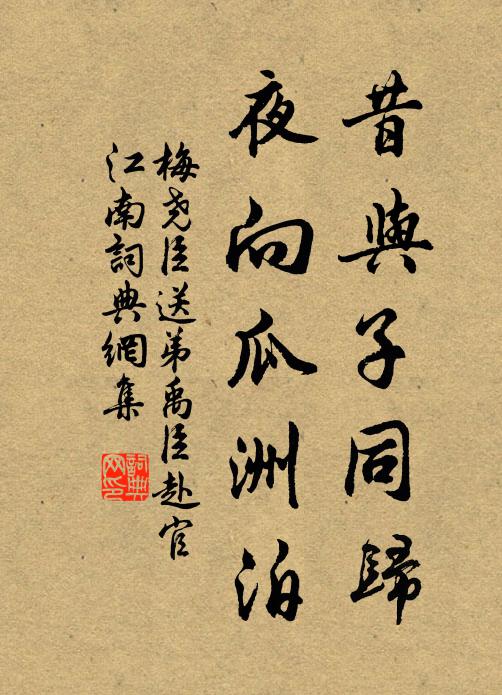 昔與子同歸
夜向瓜洲泊
梅尧臣送弟禹臣赴官
江南詞典網集
詞典
网印